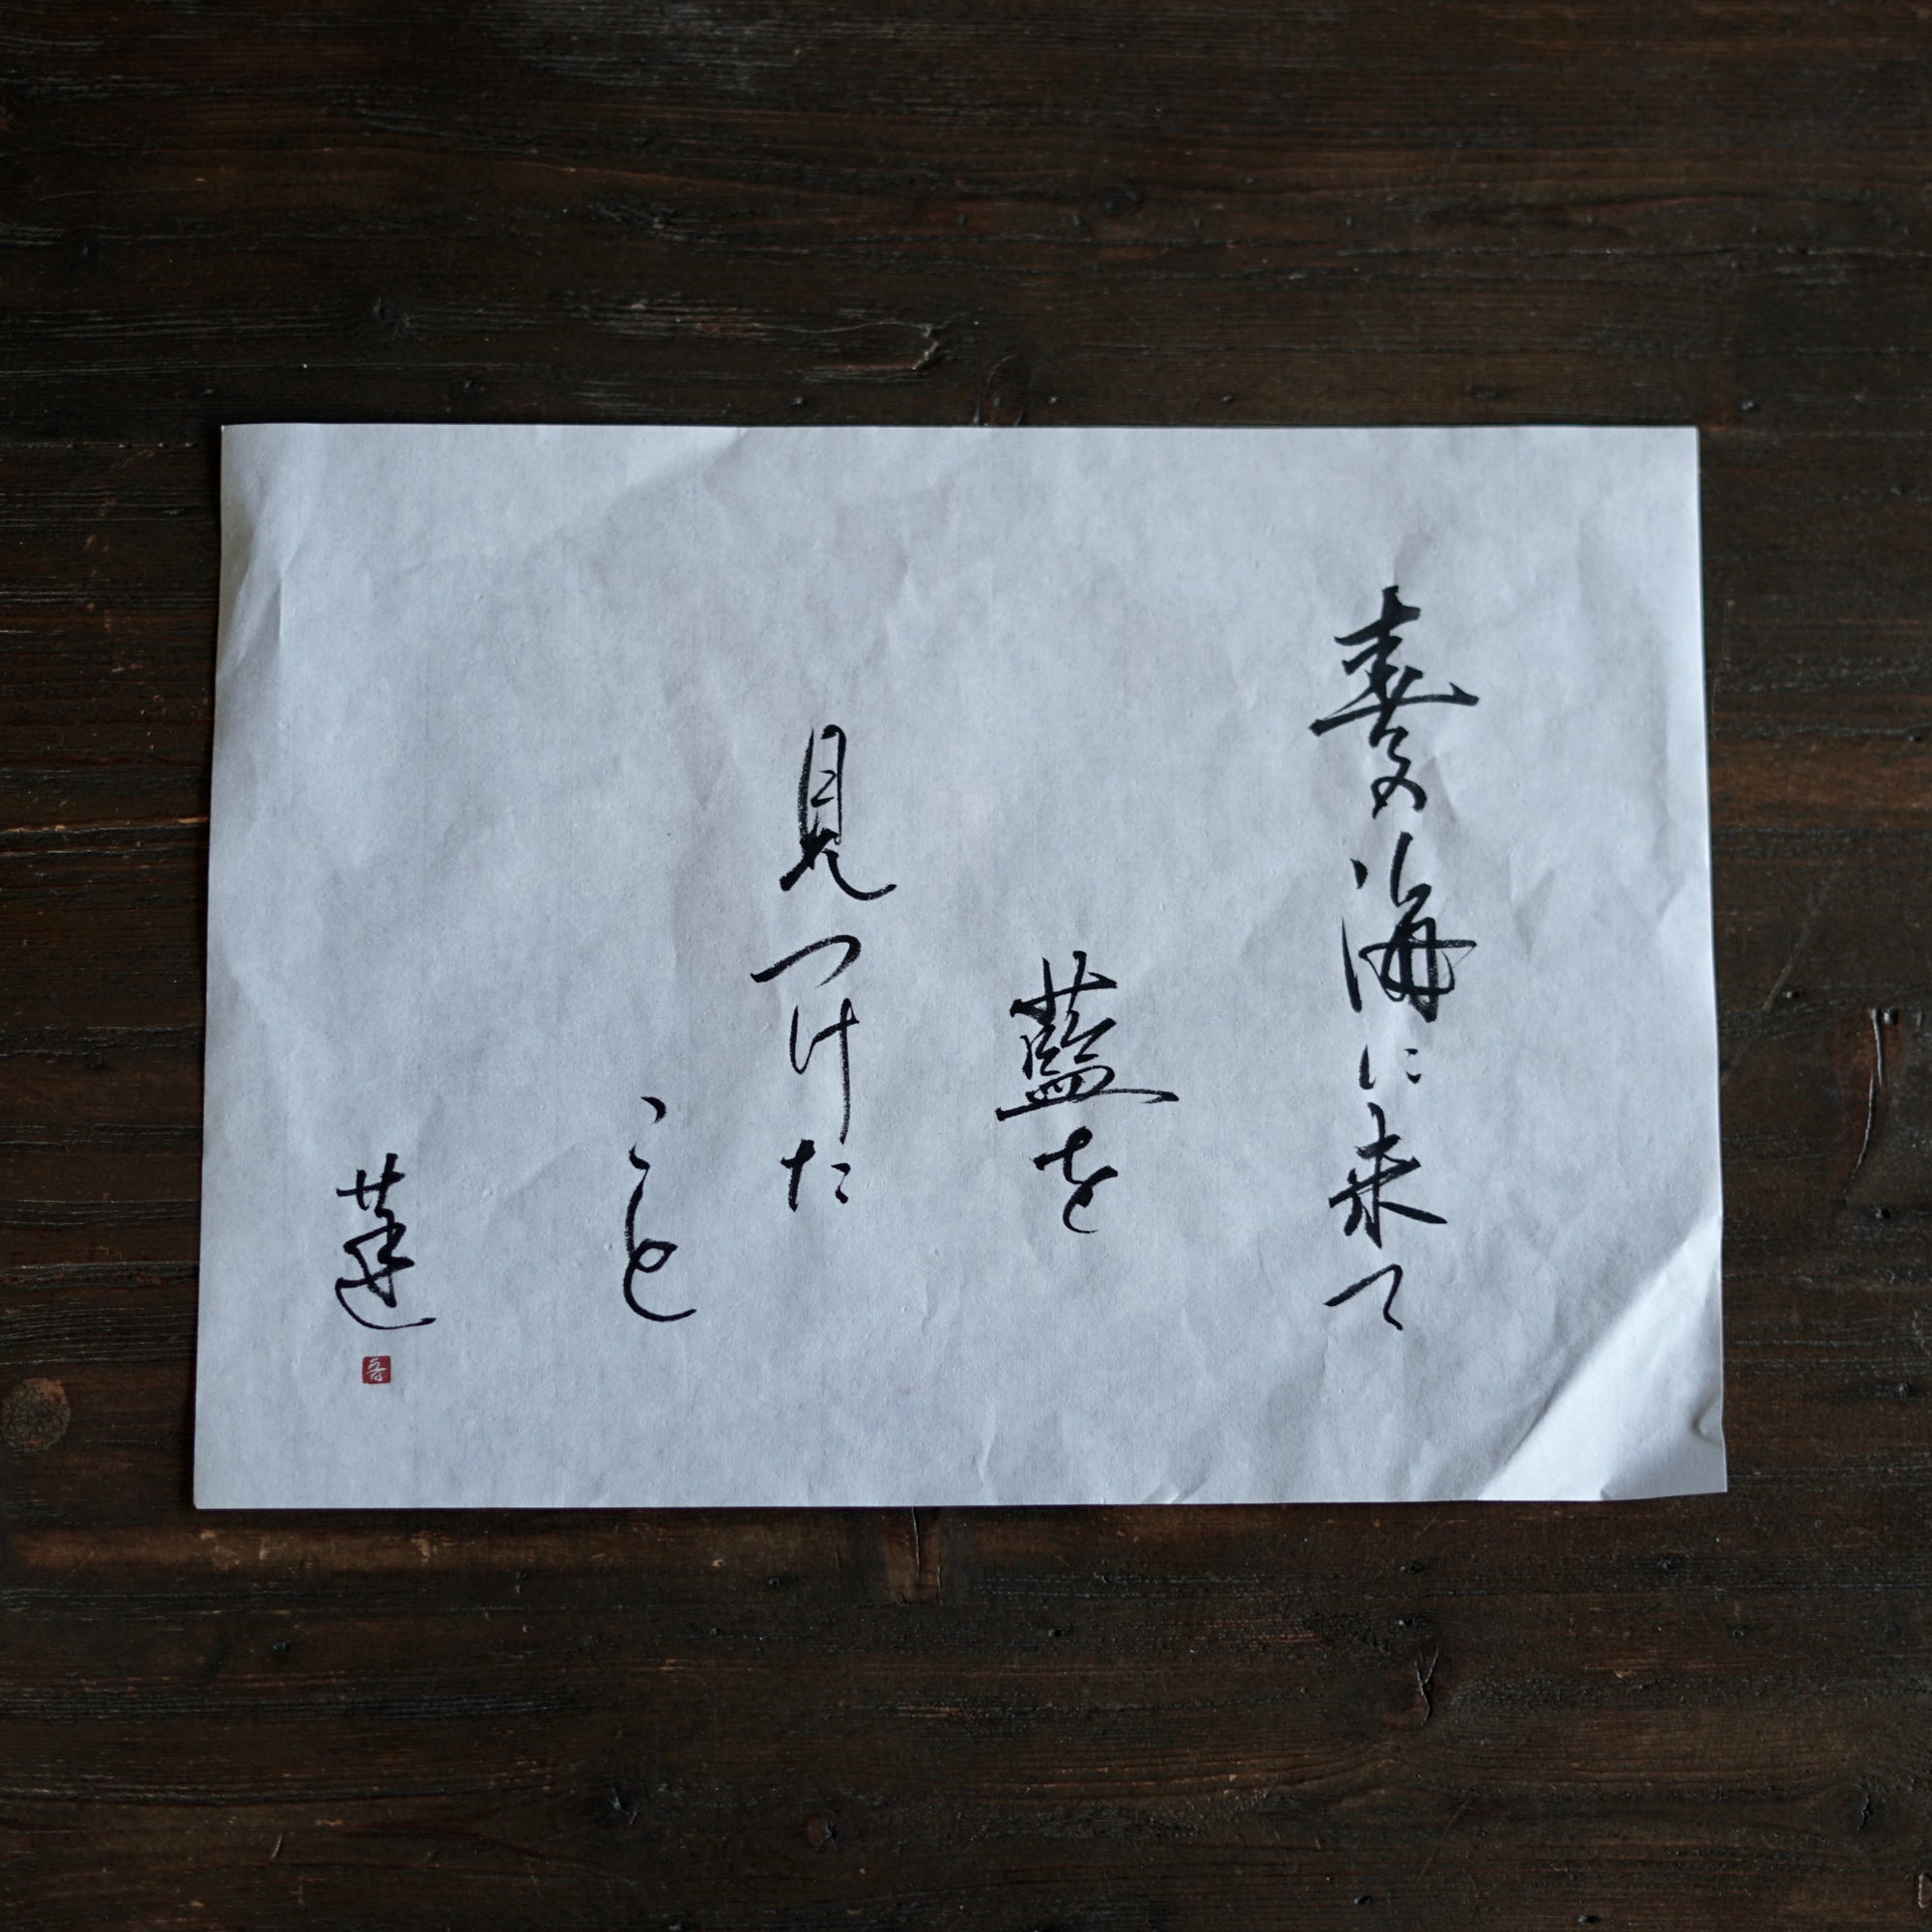 海に来て
藍を
見つけた
こと
蓮